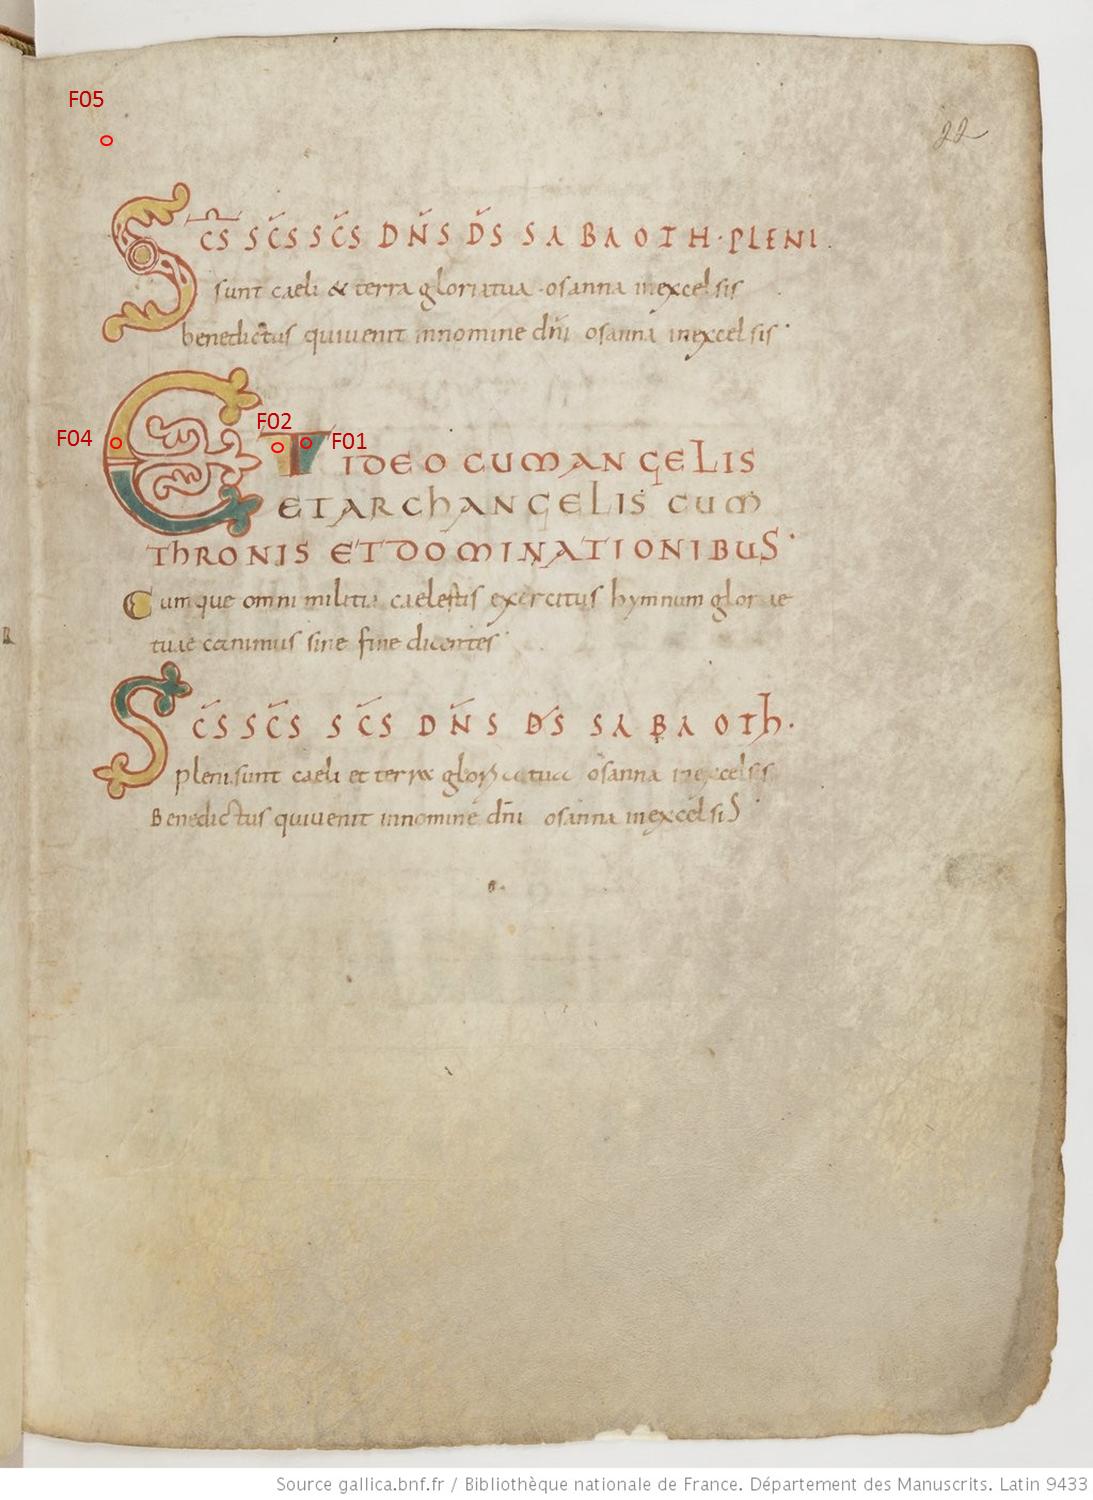 F05
22
SC̄S SC̄S SC̄S DN̄S D̄S SABAOTH · PLENI
sunt caeli & terra gloria tua · osanna inexcelsis
benedictus quiuenit innomine dn̄i osanna inexcelsis
F04 F02 F01
ET IDEO CUM ANGELIS
ET ARCHANGELIS CUM
THRONIS ET DOMINATIONIBUS
Cumque omni militia caelestis exercitus hymnum gloriae
tuae canimus sine fine dicentes
SC̄S SC̄S SC̄S DN̄S D̄S SABAOTH ·
pleni sunt caeli et terra gloria tua osanna inexcelsis
Benedictus quiuenit innomine dn̄i osanna inexcelsis
Source gallica.bnf.fr / Bibliothèque nationale de France. Département des Manuscrits. Latin 9433